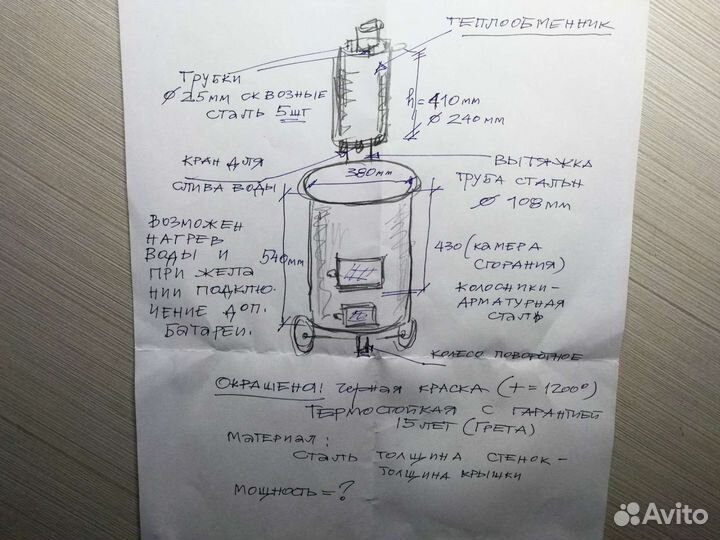 ТЕПЛООБМЕННИК
ТРУБКИ
Ø 25мм СКВОЗНЫЕ
СТАЛЬ 5шт
h=410мм
Ø 240мм
КРАН ДЛЯ
СЛИВА ВОДЫ
ВЫТЯЖКА
ТРУБА СТАЛЬН
Ø 108мм
380мм
ВОЗМОЖЕН
НАГРЕВ
ВОДЫ И
ПРИ ЖЕЛА
НИИ ПОДКЛЮ-
ЧЕНИЕ ДОП.
БАТАРЕИ.
540мм
430 (КАМЕРА
СГОРАНИЯ)
КОЛОСНИКИ-
АРМАТУРНАЯ
СТАЛЬ
КОЛЕСО ПОВОРОТНОЕ
ОКРАШЕНА! ЧЕРНАЯ КРАСКА (t=1200°)
ТЕРМОСТОЙКАЯ С ГАРАНТИЕЙ
15 ЛЕТ (ГРЕТА)
МАТЕРИАЛ:
СТАЛЬ ТОЛЩИНА СТЕНОК-
ТОЛЩИНА КРЫШКИ
МОЩНОСТЬ=?
Avito